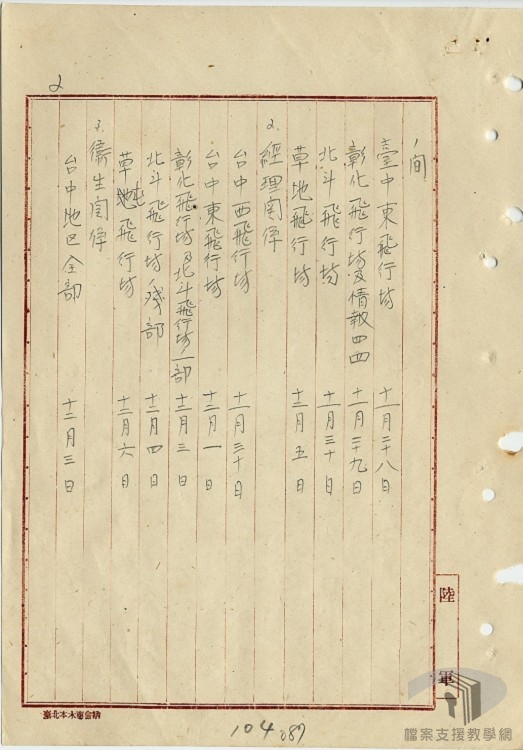 2
間
臺中東飛行場 十一月二十八日
彰化飛行場及情報四四 十一月二十九日
北斗飛行場 十一月三十日
草地飛行場 十二月五日
2. 經理関係
台中西飛行場 十一月三十日
台中東飛行場 十二月一日
彰化飛行場及北斗飛行場ノ一部 十二月三日
北斗飛行場ノ残部 十二月四日
草屯飛行場 十二月六日
3. 衛生関係
台中地区全部 十二月三日
陸軍
104
檔案支援教學網